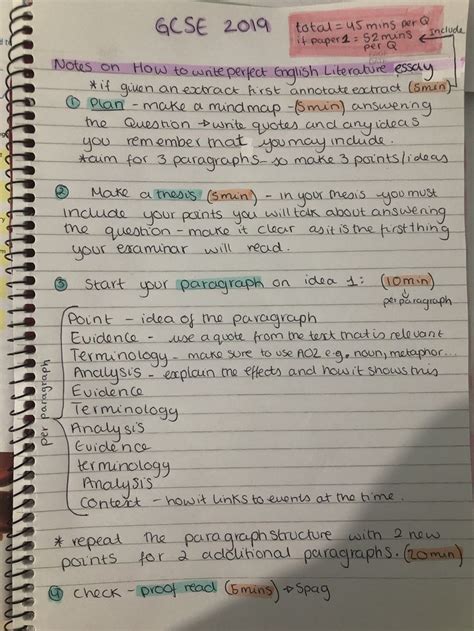 GCSE 2019
total = 45 mins per Q
if paper 1 = 52 mins
per Q
include
Notes on How to write perfect English Literature essay
*if given an extract first annotate extract (5min)
① Plan - make a mindmap - (5min) answering
the Question → write quotes and any ideas
you remember that you may include.
*aim for 3 paragraphs - so make 3 points/ideas
② Make a thesis (5min) - in your thesis - you must
include your points you will talk about answering
the question - make it clear as it is the first thing
your examinar will read.
③ Start your paragraph on idea 1: (10min)
per paragraph
per paragraph
Point - idea of the paragraph
Evidence - use a quote from the text that is relevant
Terminology - make sure to use AO2 e.g. noun, metaphor...
Analysis - explain the effects and how it shows this
Evidence
Terminology
Analysis
Evidence
terminology
Analysis
Context - how it links to events at the time.
* repeat the paragraph structure with 2 new
points for 2 additional paragraphs. (20min)
④ Check - proof read (5mins) → Spag